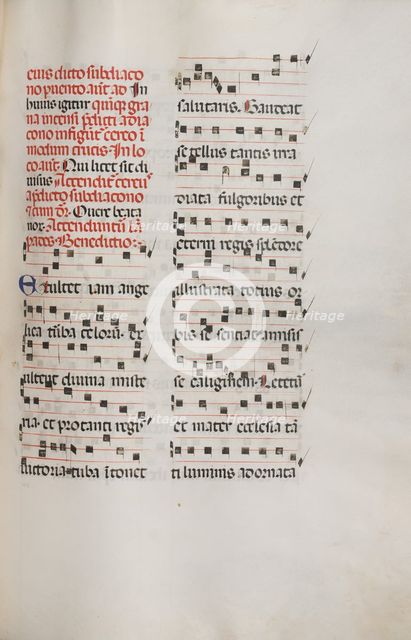 eius dicto subdiaco
no puento aut ad In
huius igitur quiq3 gra
na incensi
cono infigunt cereo i
modum crucis In lo
co aut. Qui licet sit di
uisus Accenditur cereus
a subdiacono
Quere beata
nox Accenduntur
Benedictio
Exultet iam ange
lica turba celorum. ex
ultent diuina miste
ria. et pro tanti regis
uictoria tuba intonet
salutaris. Gaudeat
se tellus tantis irra
diata fulgoribus et
eterni regis splendore
illustrata totius or
bis se sentiat amisis
se caliginem. Letetur
et mater ecclesia tā
ti luminis adornata
Heritage
Heritage
Heritage
Heritage
Heritage
Heritage
©